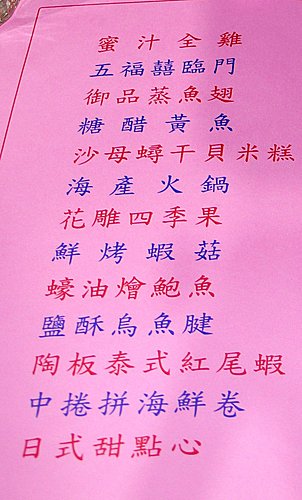 蜜汁全雞
五福囍臨門
御品蒸魚翅
糖醋黃魚
沙母蟳干貝米糕
海產火鍋
花雕四季果
鮮烤蝦菇
蠔油燴鮑魚
鹽酥烏魚腱
陶板泰式紅尾蝦
中捲拼海鮮卷
日式甜點心